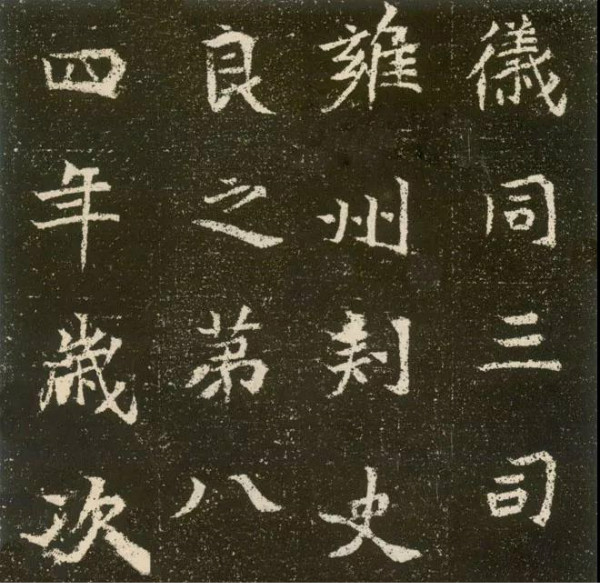 儀同三司
雍州刾史
良之苐八
四年歳次